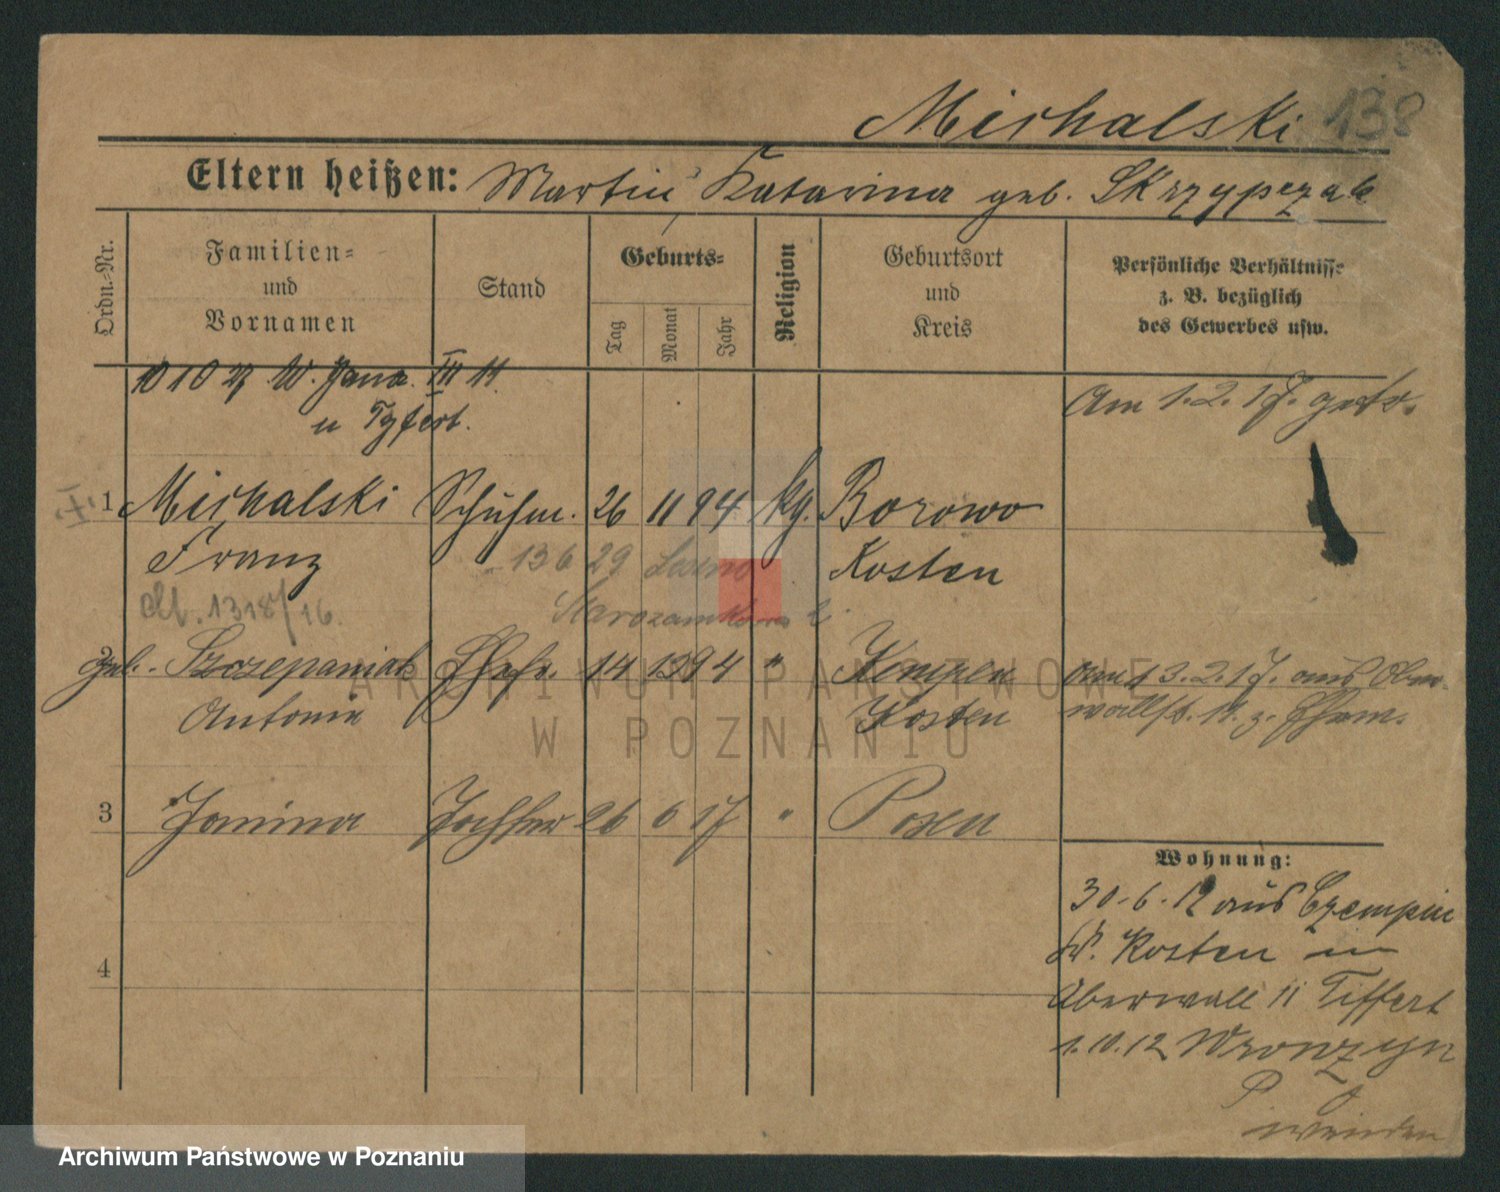 Michalski 138
Eltern heißen: Martin Katarina geb. Skrzypczak
Ordn.=Nr.
Familien=
und
Vornamen
Stand
Geburts=
Tag
Monat
Jahr
Religion
Geburtsort
und
Kreis
Persönliche Verhältnisse
z. B. bezüglich
des Gewerbes usw.
10 10 27 W. Jana III 11
Am 1. 2. 17. getr.
1 Michalski Schuhm. 26 11 94 kg. Borowo
Franz 13 6 29 Kosten
1318/16.
2 geb. Szczepaniak Ehefr. 14 1 94 " Kempen am 13. 2. 17. aus Ober
Antonie Kosten wallstr. 11 z. Ehem.
3 Janina Tochter 26 6 17 " Posen
Wohnung:
30. 6. 12 aus Czempin
Kr. Kosten in
4
Oberwall 11 Tiffert
1. 10. 12 Wronzyn
P
wenden
ARCHIWUM PAŃSTWOWE
W POZNANIU
Archiwum Państwowe w Poznaniu